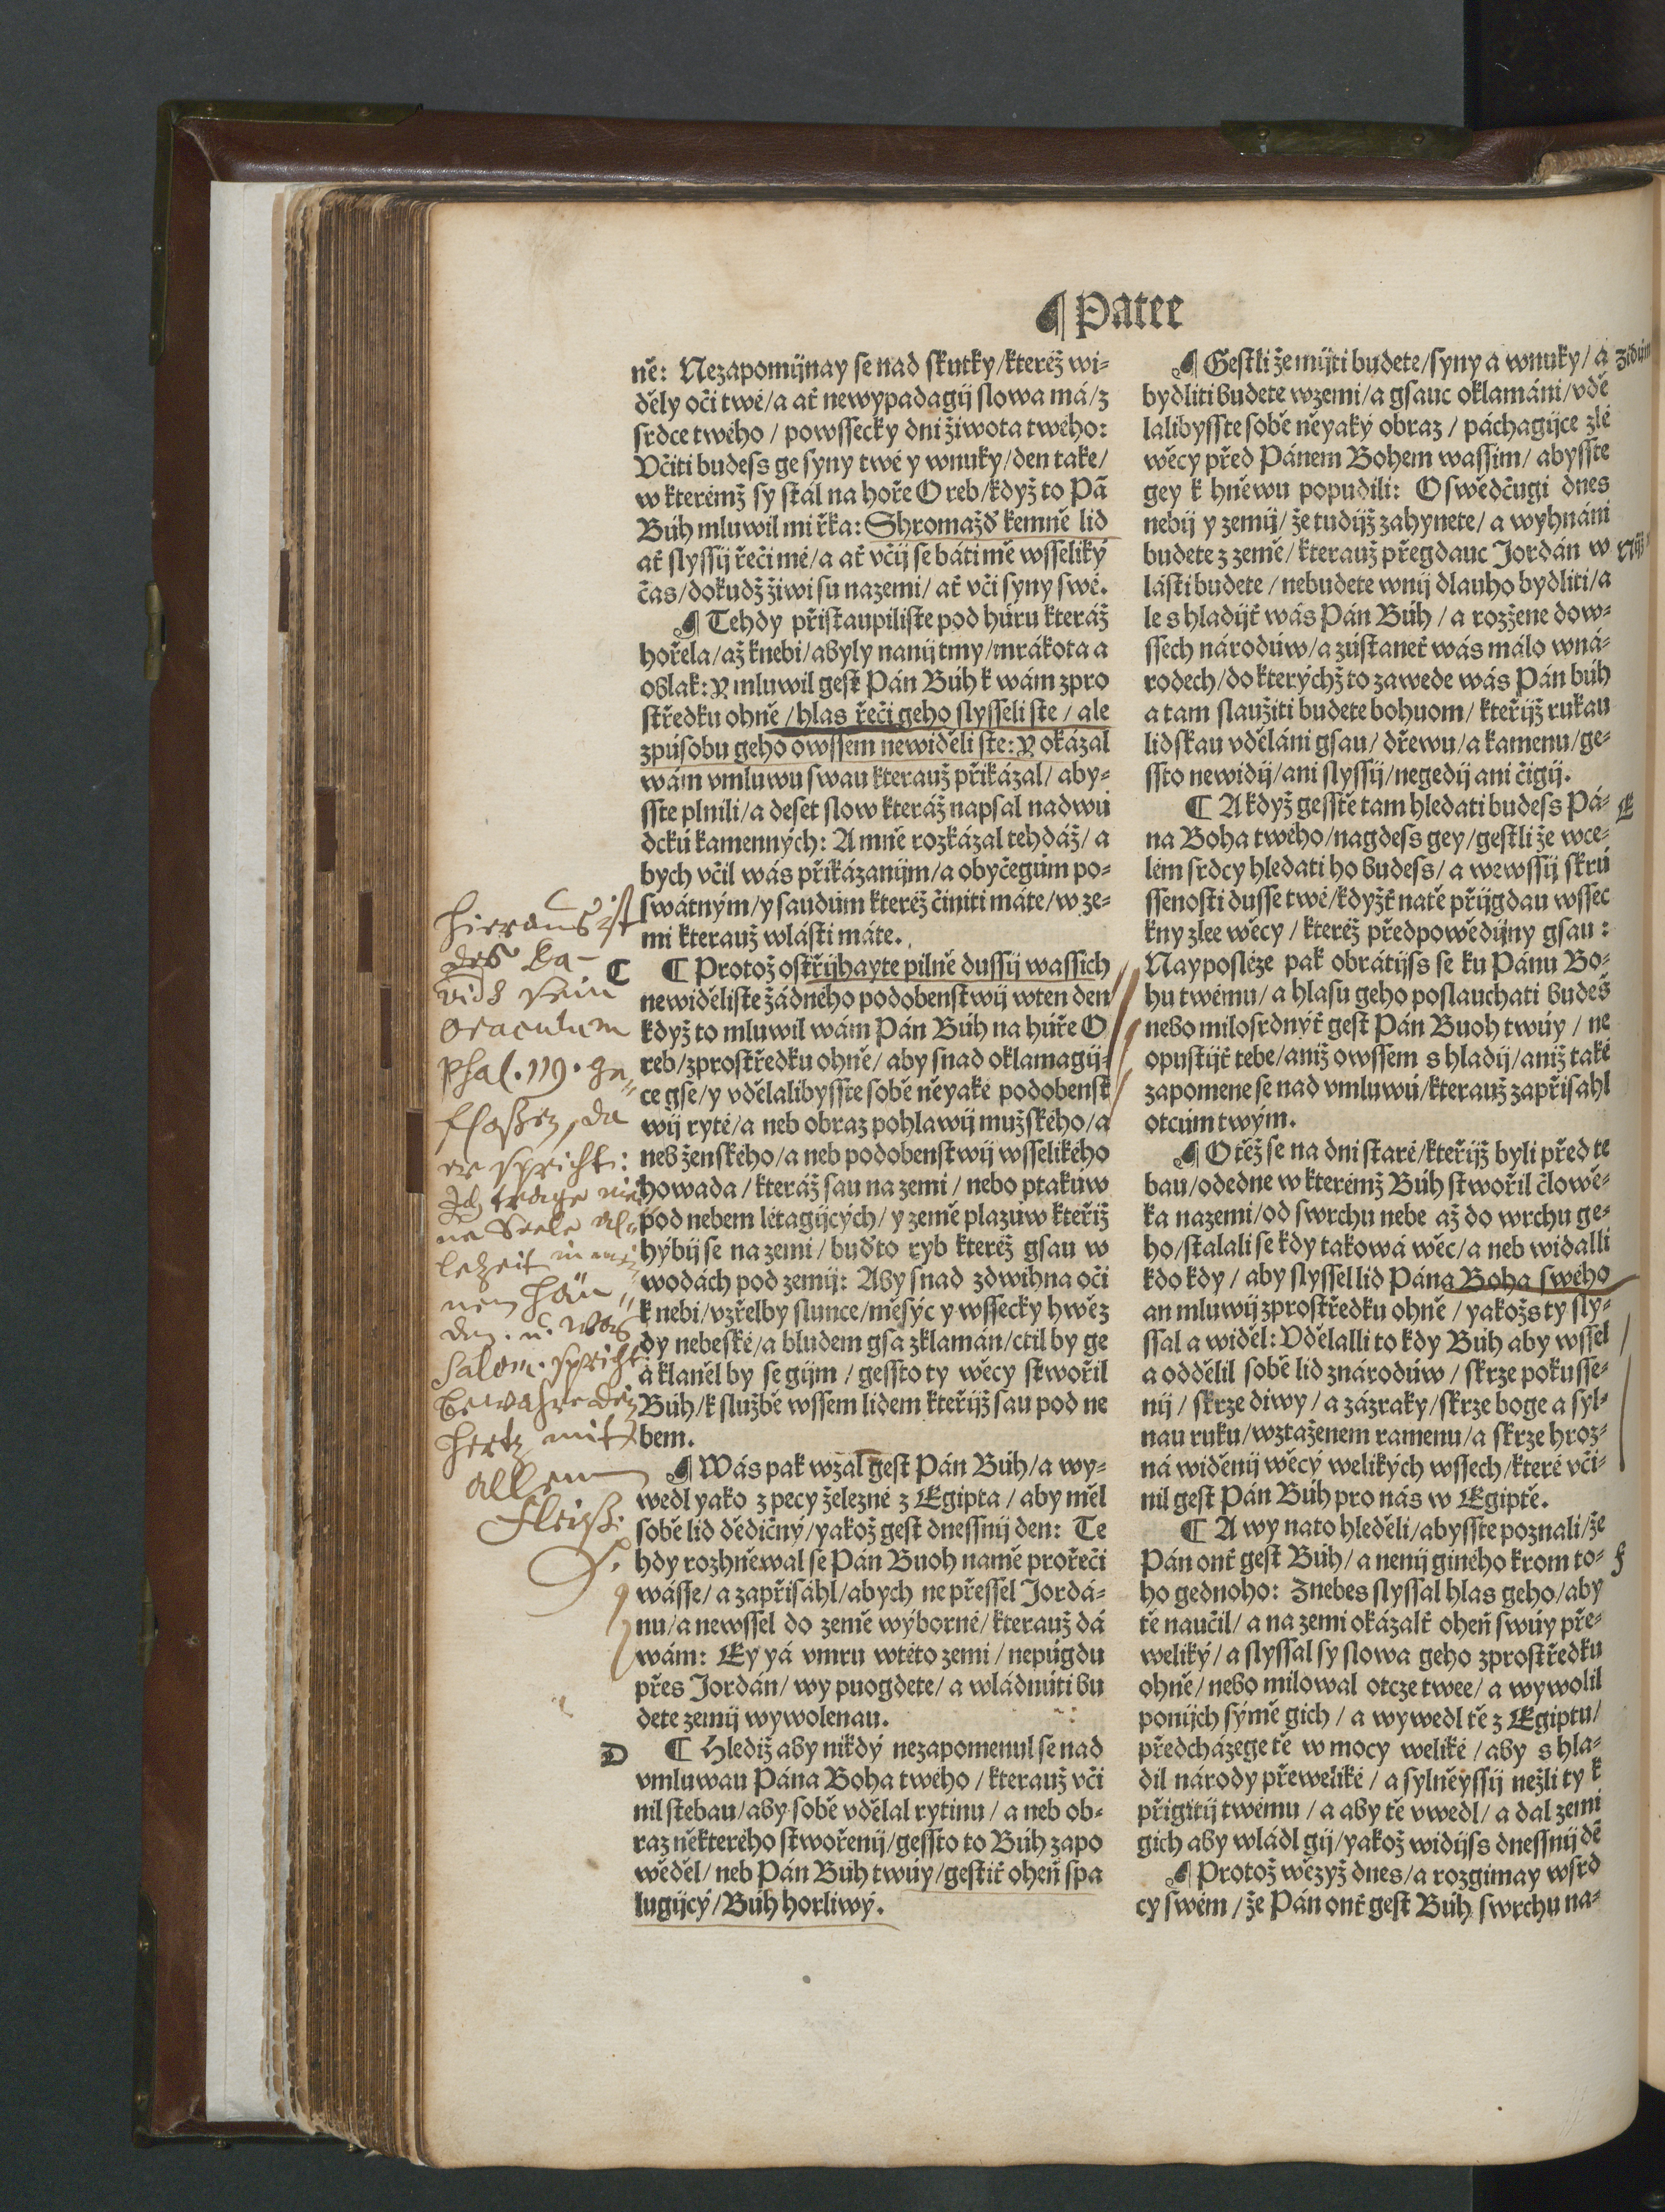 ¶ Patee
ně: Nezapomijnay se nad skutky/kteréž wi-
děly oči twé/a ať newypadagij slowa má/z
srdce twého / powssecky dni žiwota twého:
Včiti budeſs ge syny twé y wnuky/den take/
w kterémž sy stál na hoře O reb/když to Pā
Búh mluwil mi řka: Shromažď kemně lid
ať slyssij řeči mé/a ať včij se báti mě wsseliký
čas/dokudž žiwi su na zemi/ ať včí syny swé.
¶ Tehdy přistaupiliste pod húru kteráž
hořela/až k nebi/a byly na nij tmy/mrákota a
oblak: Y mluwil gest Pán Búh k wám z pro
středku ohně /hlas řeči geho slysseli ste / ale
zpúsobu geho owssem newiděli ste: Y okázal
wám vmluwu swau kterauž přikázal/ aby-
sste plnili/a deset slow kteráž napsal na dwú
dckú kamenných: A mně rozkázal tehdáž/ a
bych včil wás přikázanijm/a obyčegúm po-
swátným/y saudúm kteréž činiti máte/w ze-
mi kterauž wlásti máte.
C ¶ Protož ostřijhayte pilně dussij wassich
newiděliste žádného podobenstwij w ten den
když to mluwil wám Pán Búh na húře O
reb/z prostředku ohně/ aby snad oklamagij-
ce gse/y vdělalibysste sobě něyaké podobenst
wij ryté/a neb obraz pohlawij mužského/a
neb ženského/a neb podobenstwij wsselikého
howada / kteráž sau na zemi / nebo ptakúw
pod nebem létagijcých/ y země plazúw kteříž
hýbij se na zemi / buďto ryb kteréž gsau w
wodách pod zemij: Aby snad zdwihna oči
k nebi/vzřelby slunce/měsýc y wssecky hwěz
dy nebeské/a bludem gsa zklamán/ctil by ge
a klaněl by se gijm / gessto ty wěcy stwořil
Búh/k službě wssem lidem kteřijž sau pod ne
bem.
¶ Wás pak wzal gest Pán Búh/a wy-
wedl yako z pecy železné z Egipta / aby měl
sobě lid dědičný/yakož gest dnessnij den: Te
hdy rozhněwal se Pán Buoh na mě pro řeči
wásse/a zapřisáhl/abych nepřessel Jordá-
nu/a newssel do země wýborné/kterauž dá
wám: Ey yá vmru w této zemi / nepúgdu
přes Jordán/ wy puogdete/ a wládnúti bu
dete zemij wywolenau.
D ¶ Hlediž aby nikdý nezapomenul se nad
vmluwau Pána Boha twého / kterauž vči
nil s tebau/aby sobě vdělal rytinu / a neb ob-
raz některého stwořenij/gessto to Búh zapo
wěděl/ neb Pán Búh twúy/gestiť oheň spa
lugijcý/Búh horliwý.
hieraus ist
des Da-
vids sein
Oraculum
Psal. 119. ge-
floßen, da
er spricht:
Ich trage mei
ne Seele al-
lezeit in mei
nen Hän-
den. u. was
Salom. spricht
Bewahre dein
Hertz mit
allem
Fleiß.
¶ Gestli že mijti budete/syny a wnuky/ a
bydliti budete w zemi/a gsauc oklamáni/vdě
lalibysste sobě něyaký obraz / páchagijce zlé
wěcy před Pánem Bohem wassim/ abysste
gey k hněwu popudili: O swědčugi dnes
nebij y zemij/ že tudijž zahynete/ a wyhnáni
budete z země/kterauž přegdauc Jordán w
lásti budete / nebudete w nij dlauho bydliti/a
le s hladijť wás Pán Búh / a rozžene do w-
ssech národúw/a zústaneť wás málo w ná-
rodech/do kterýchž to zawede wás Pán búh
a tam slaužiti budete bohuom/ kteřijž rukau
lidskau vděláni gsau/ dřewu/a kamenu/ge-
ssto newidij/ani slyssij/negedij ani čigij.
¶ A když gesstě tam hledati budeſs Pá- E
na Boha twého/nagdeſs gey/gestli že w ce-
lém srdcy hledati ho budeſs/ a we wssij skrú
ssenosti dusse twé/kdyžť na tě přijgdau wssec
kny zlee wěcy / kteréž předpowědijny gsau:
Nayposléze pak obrátijſs se ku Pánu Bo-
hu twému/ a hlasu geho poslauchati budeš
nebo milosrdnýť gest Pán Buoh twúy / ne
opustijť tebe/aniž owssem s hladij/aniž také
zapomene se nad vmluwú/kterauž zapřisahl
otcúm twým.
¶ O těž se na dni staré/kteřijž byli před te
bau/ode dne w kterémž Búh stwořil člowě-
ka na zemi/od swrchu nebe až do wrchu ge-
ho/stalali se kdy takowá wěc/a neb widalli
kdo kdy / aby slyssel lid Pána Boha swého
an mluwij z prostředku ohně / yakožs ty sly-
ssal a widěl: Vdělalli to kdy Búh aby wssel
a oddělil sobě lid z národúw / skrze pokusse-
nij / skrze diwy / a zázraky/skrze boge a syl-
nau ruku/wztaženem ramenu/a skrze hroz-
ná widěnij wěcý welikých wssech/které vči-
nil gest Pán Búh pro nás w Egiptě.
¶ A wy na to hleděli/abysste poznali/že
Pán onť gest Búh/ a nenij giného krom to- F
ho gednoho: Z nebes slyssal hlas geho/aby
tě naučil/ a na zemi okázalť oheň swúy pře-
weliký/ a slyssal sy slowa geho z prostředku
ohně/ nebo milowal otcze twee/ a wywolil
po nijch sýmě gich / a wywedl tě z Egiptu/
předcházege tě w mocy weliké / aby s hla-
dil národy přeweliké / a sylněyssij nežli ty k
přigitij twému / a aby tě vwedl/ a dal zemi
gich aby wládl gij/yakož widijſs dnessnij dē
¶ Protož wězyž dnes/a rozgimay w srd
cy swém / že Pán onť gest Búh swrchu na-